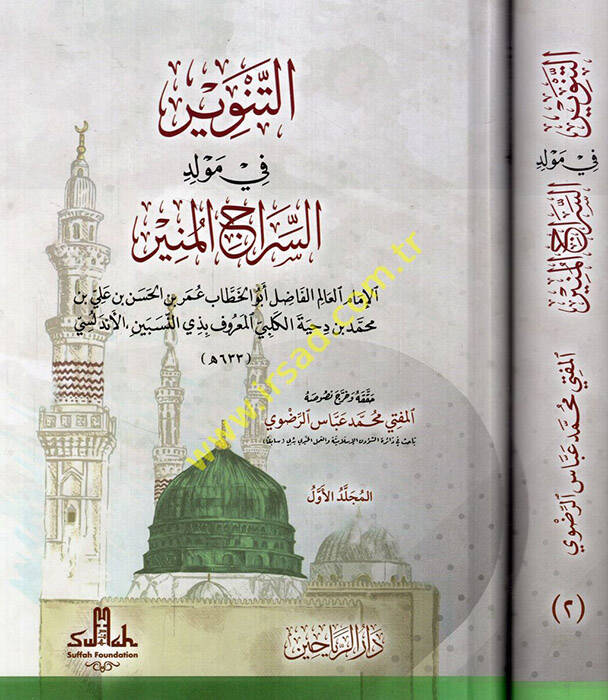 التَّنْوِير
فِي مَوْلِدِ
السِّرَاجِ المُنِيْر
الإمَام العَالِم الفَاضِل أبُو الخَطَّاب عُمَر بن الحَسَن بن عَلِيّ بن
محمّد بن دِحيَة الكَلبِيّ المَعرُوف بِذِي النَّسَبَين، الأَندَلُسِيّ
(٦٣٣هـ)
حَقَّقَهُ وَخَرَّجَ نُصُوصَهُ
المُفتِي مُحَمَّد عَبَّاس الرَّضَوِي
بَاحِث فِي دَائِرَة الشُّؤُون الإِسْلَامِيَّة وَالعَمَل الخَيْرِي بِدُبَي (سَابِقًا)
المُجَلَّدُ الأَوَّلُ
دَارُ الرَّيَاحِين
Suffah
Suffah Foundation
www.irsad.com.tr
التَّنْوِير
فِي مَوْلِدِ
السِّرَاجِ المُنِيْر
المُفتِي مُحَمَّد عَبَّاس الرَّضَوِي
(٢)